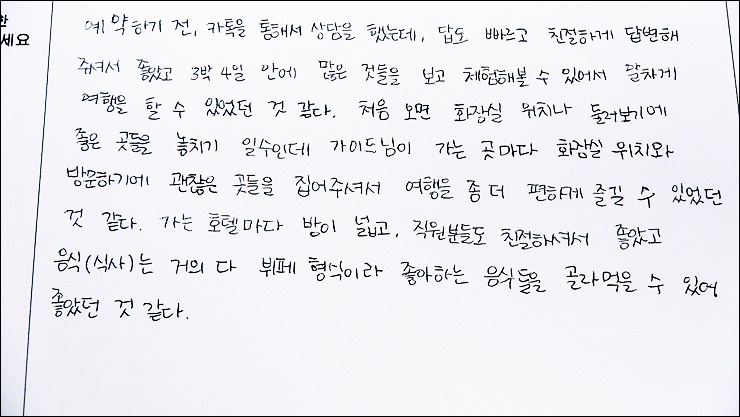 한
세요
예약하기 전, 카톡을 통해서 상담을 했는데, 답도 빠르고 친절하게 답변해
주셔서 좋았고 3박 4일 안에 많은 것들을 보고 체험해볼 수 있어서 알차게
여행을 할 수 있었던 것 같다. 처음 오면 화장실 위치나 둘러보기에
좋은 곳들을 놓치기 일수인데 가이드님이 가는 곳마다 화장실 위치와
방문하기에 괜찮은 곳들을 집어주셔서 여행을 좀 더 편하게 즐길 수 있었던
것 같다. 가는 호텔마다 방이 넓고, 직원분들도 친절하셔서 좋았고
음식(식사)는 거의 다 뷔페 형식이라 좋아하는 음식들을 골라먹을 수 있어
좋았던 것 같다.